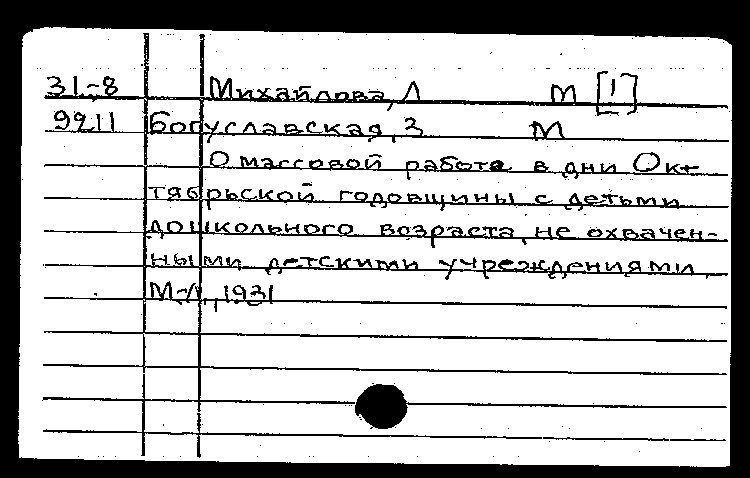 31-8 Михайлова, Л М [1]
9211 Богуславская, З М
О массовой работе в дни Окт-
тябрьской годовщины с детьми
дошкольного возраста, не охвачен-
ными детскими учреждениями.
М-Л., 1931